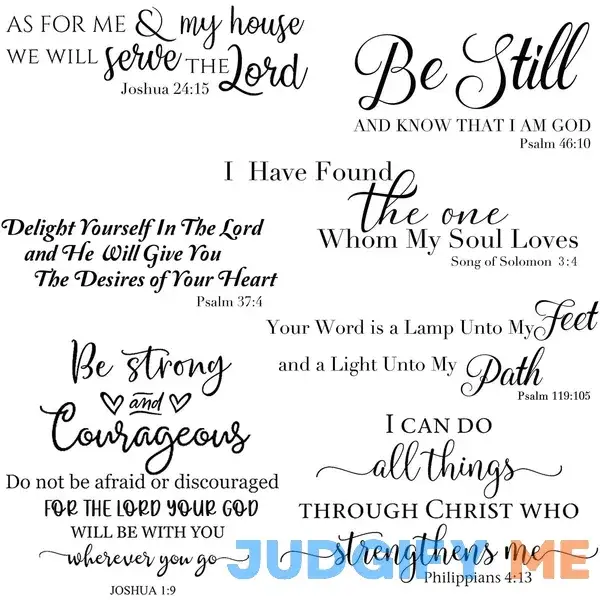 AS FOR ME & my house
WE WILL serve THE Lord
Joshua 24:15
Be Still
AND KNOW THAT I AM GOD
Psalm 46:10
I Have Found
the one
Whom My Soul Loves
Song of Solomon 3:4
Delight Yourself In The Lord
and He Will Give You
The Desires of Your Heart
Psalm 37:4
Your Word is a Lamp Unto My Feet
and a Light Unto My Path
Psalm 119:105
Be strong
and
Courageous
Do not be afraid or discouraged
FOR THE LORD YOUR GOD
WILL BE WITH YOU
wherever you go
JOSHUA 1:9
I CAN DO
all things
THROUGH CHRIST WHO
strengthens me
Philippians 4:13
JUDGIFY ME